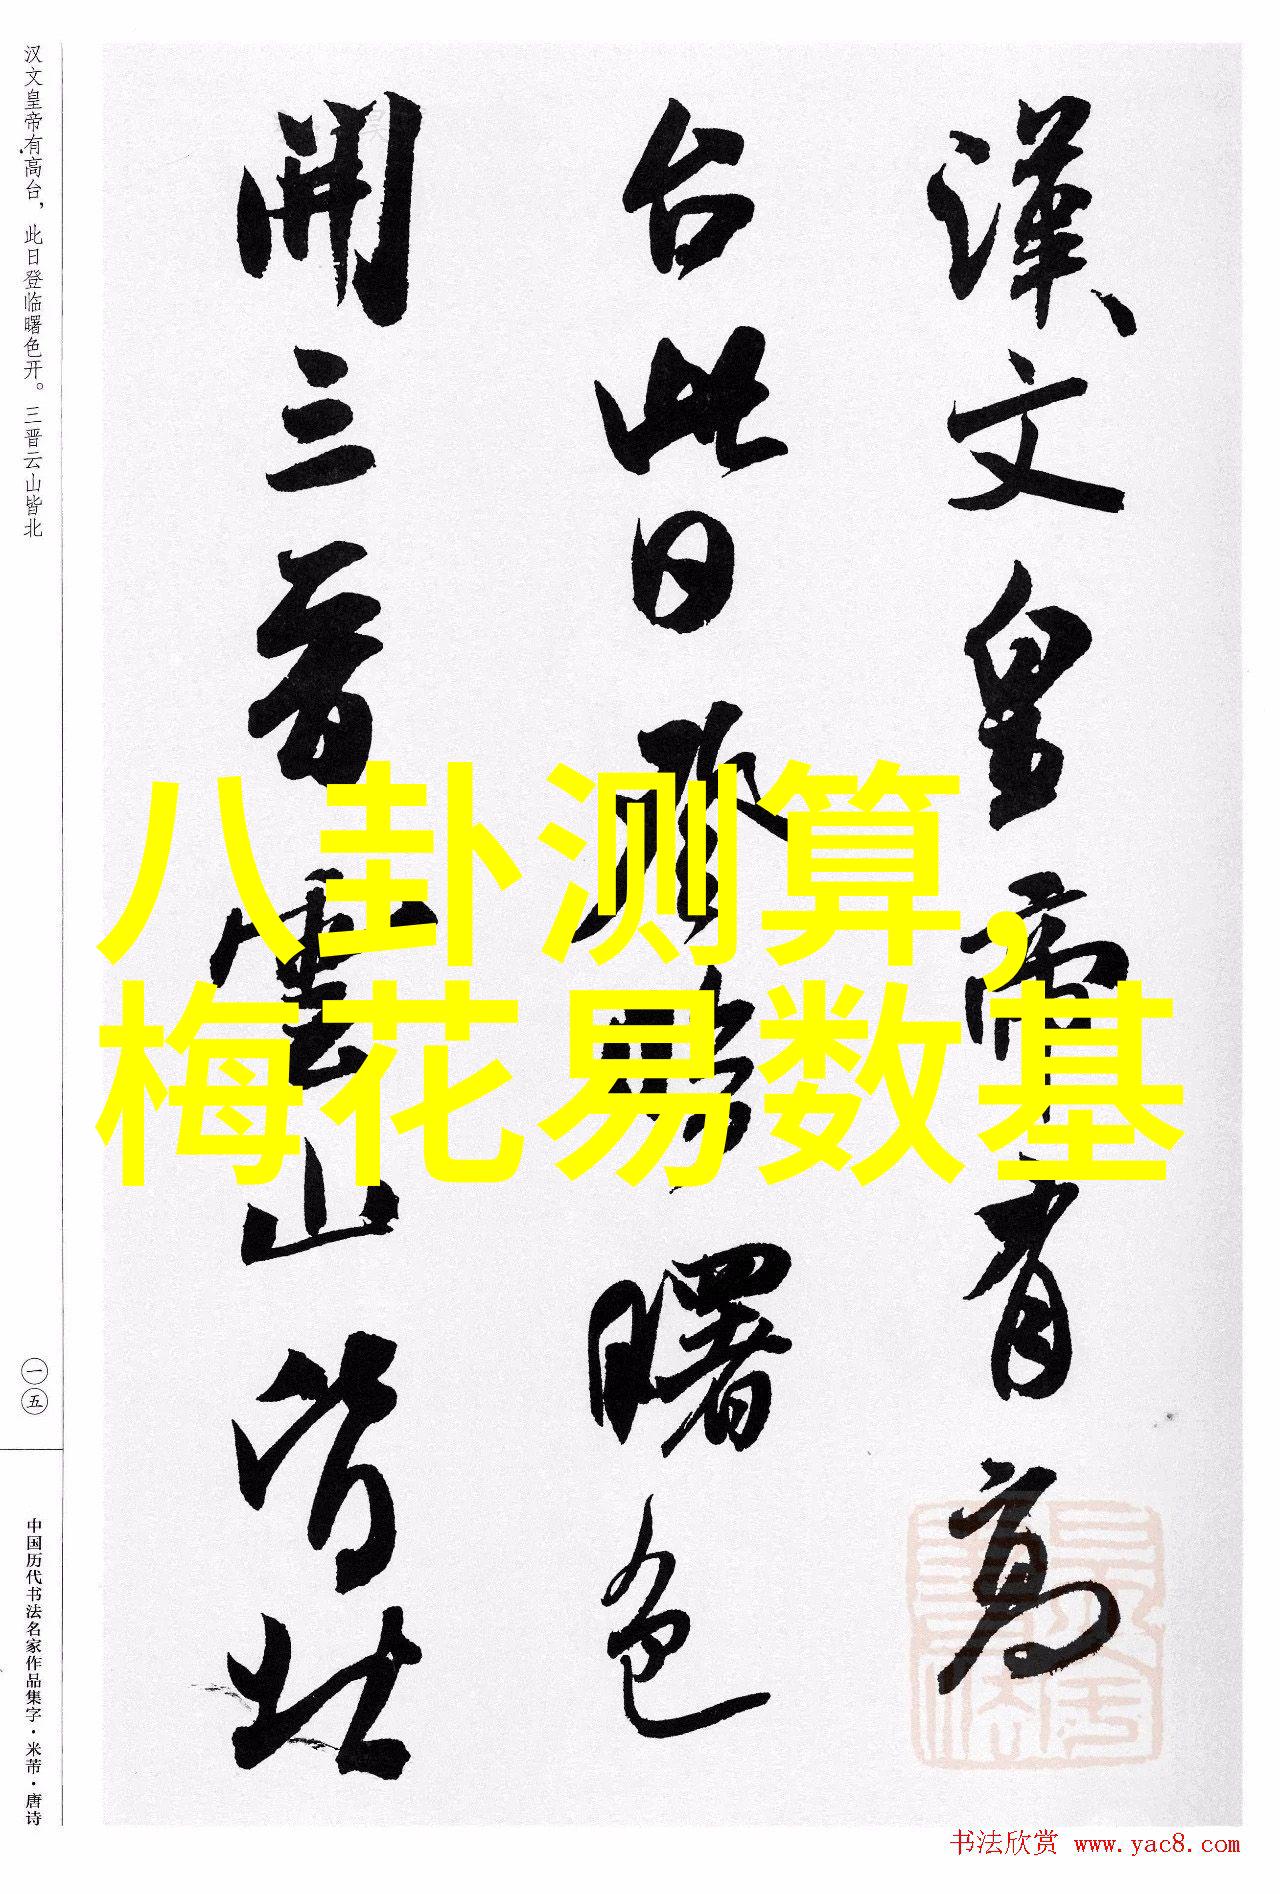 漢文皇帝有高
台此日登臨曙色
開三晉雲山皆北
八卦测算,
梅花易数基
汉文皇帝有高台，此日登临曙色开。三晋云山皆北
一五
中国历代书法名家作品集字·米芾·唐诗
书法欣赏 www.yac8.com